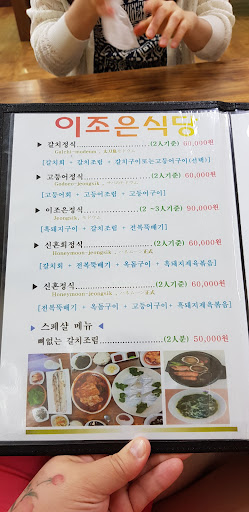 이조은식당
▶ 갈치정식 (2인기준) 60,000원
Galchi-modeum,
[갈치회 + 갈치조림 + 갈치구이또는고등어구이(선택)]
▶ 고등어정식 (2인기준) 60,000원
Godueo-jeongsik,
[고등어회 + 고등어조림 + 고등어구이]
▶ 이조은정식 (2 ~3인기준) 90,000원
Jeongsik,
[흑돼지구이 + 갈치조림 + 전복뚝배기]
▶ 신혼회정식 (2인기준) 60,000원
Honeymoon-jeongsik
[갈치회 + 전복뚝배기 + 옥돔구이 + 흑돼지제육볶음]
▶ 신혼정식 (2인기준) 60,000원
Honeymoon-jeongsik
[전복뚝배기 + 옥돔구이 + 고등어구이+ 흑돼지제육볶음]
▶ 스페샬 메뉴 ◀
뼈없는 갈치조림 (2인분) 50,000원